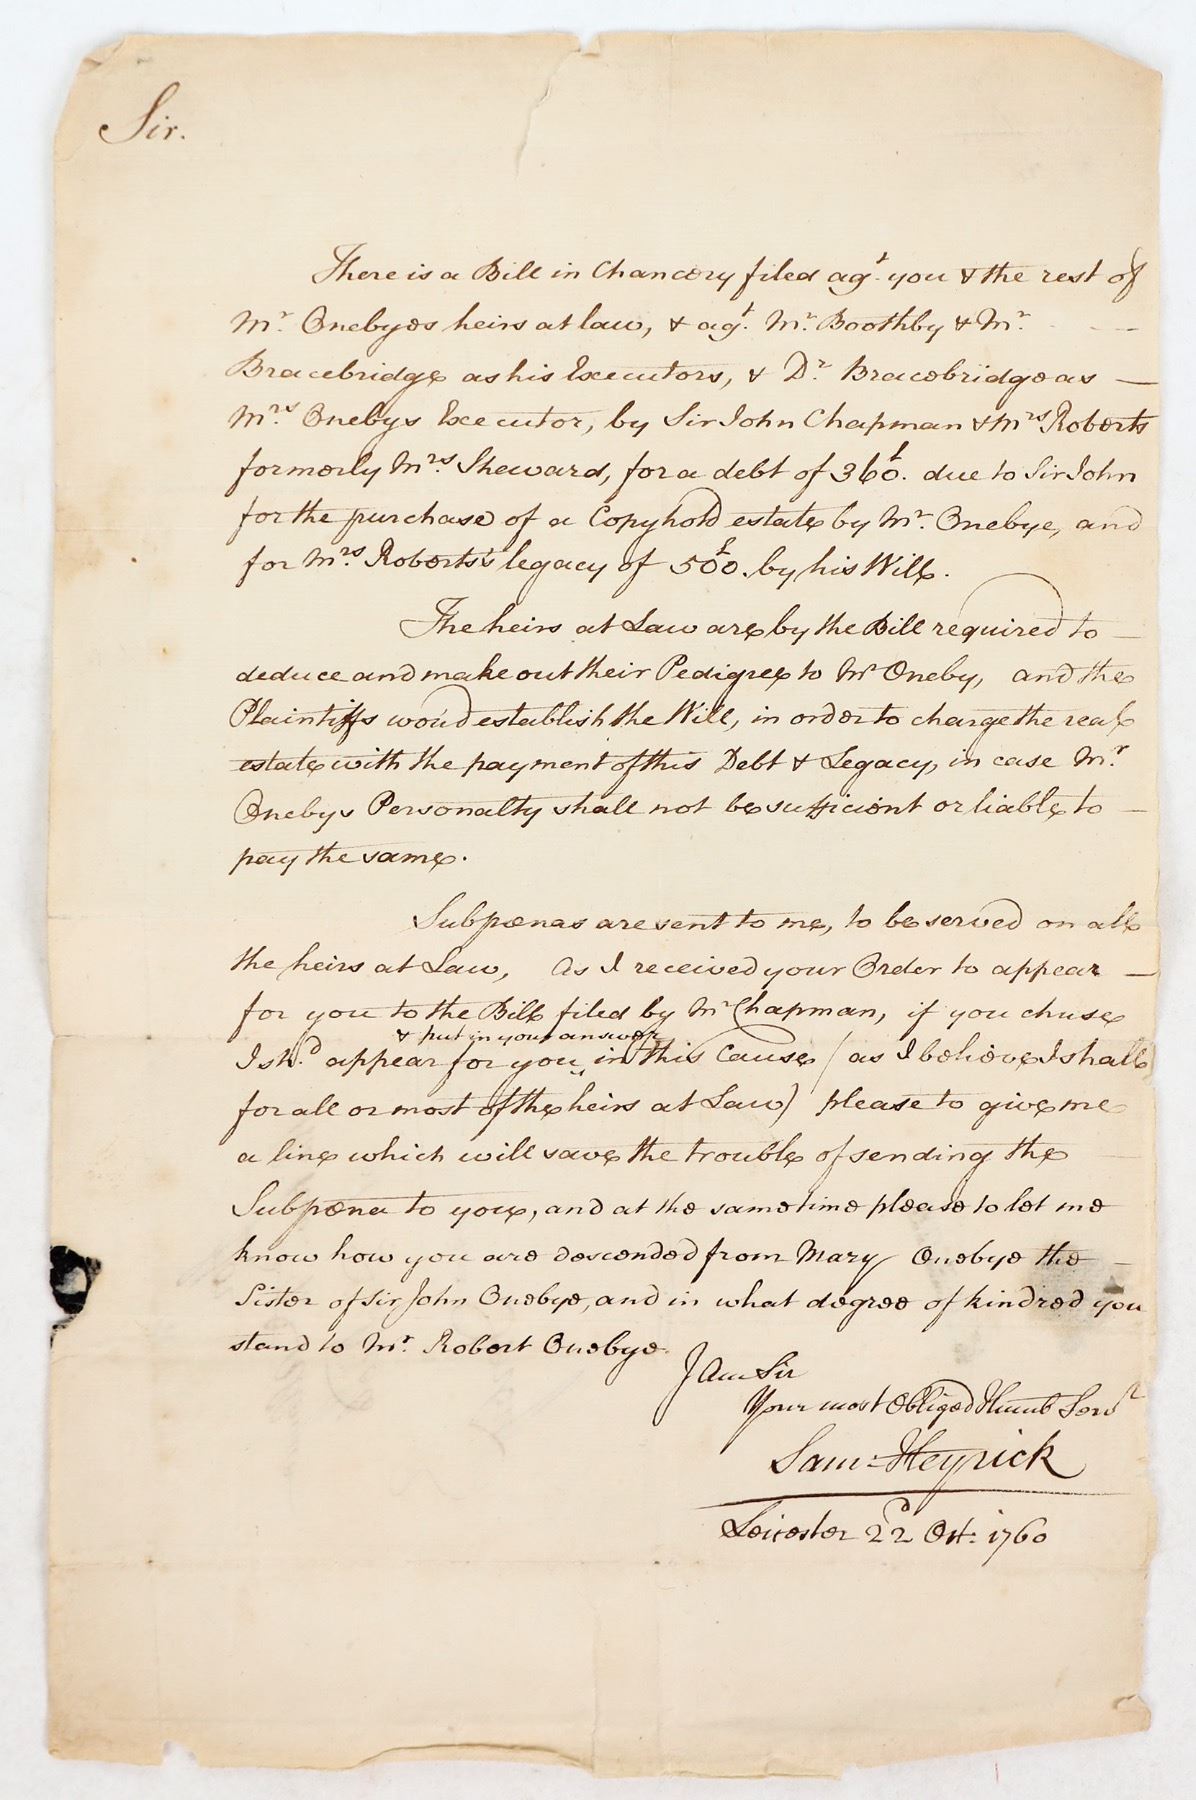 Sir.
There is a Bill in Chancery filed agt. you & the rest of
Mr. Onebyes heirs at law, & agt. Mr. Boothby & Mr.
Bracebridge as his Executors, & Dr. Bracebridge as —
Mrs. Onebys Executor, by Sir John Chapman & Mrs Roberts
formerly Mrs. Sheward, for a debt of 360£. due to Sir John
for the purchase of a Copyhold estate by Mr. Onebye, and
for Mrs. Roberts's legacy of 500£. by his Will.
The heirs at Law are by the Bill required to —
deduce and make out their Pedigree to Mr Oneby, and the
Plaintiffs wou'd establish the Will, in order to charge the real
estate with the payment of this Debt & Legacy, in case Mr.
Onebys Personalty shall not be sufficient or liable to —
pay the same.
Subpœnas are sent to me, to be served on all
the heirs at Law, As I received your Order to appear —
for you to the Bill filed by Mr Chapman, if you chuse
& put in your answer
I shd. appear for you, in this Cause (as I believe I shall
for all or most of the heirs at Law) please to give me
a line which will save the trouble of sending the
Subpœna to you, and at the same time please to let me
know how you are descended from Mary Onebye the —
Sister of Sir John Onebye, and in what degree of kindred you
stand to Mr. Robert Onebye.
I am Sir
Your most Obliged Humb Servt
Sam: Heyrick
Leicester 22d Oct: 1760